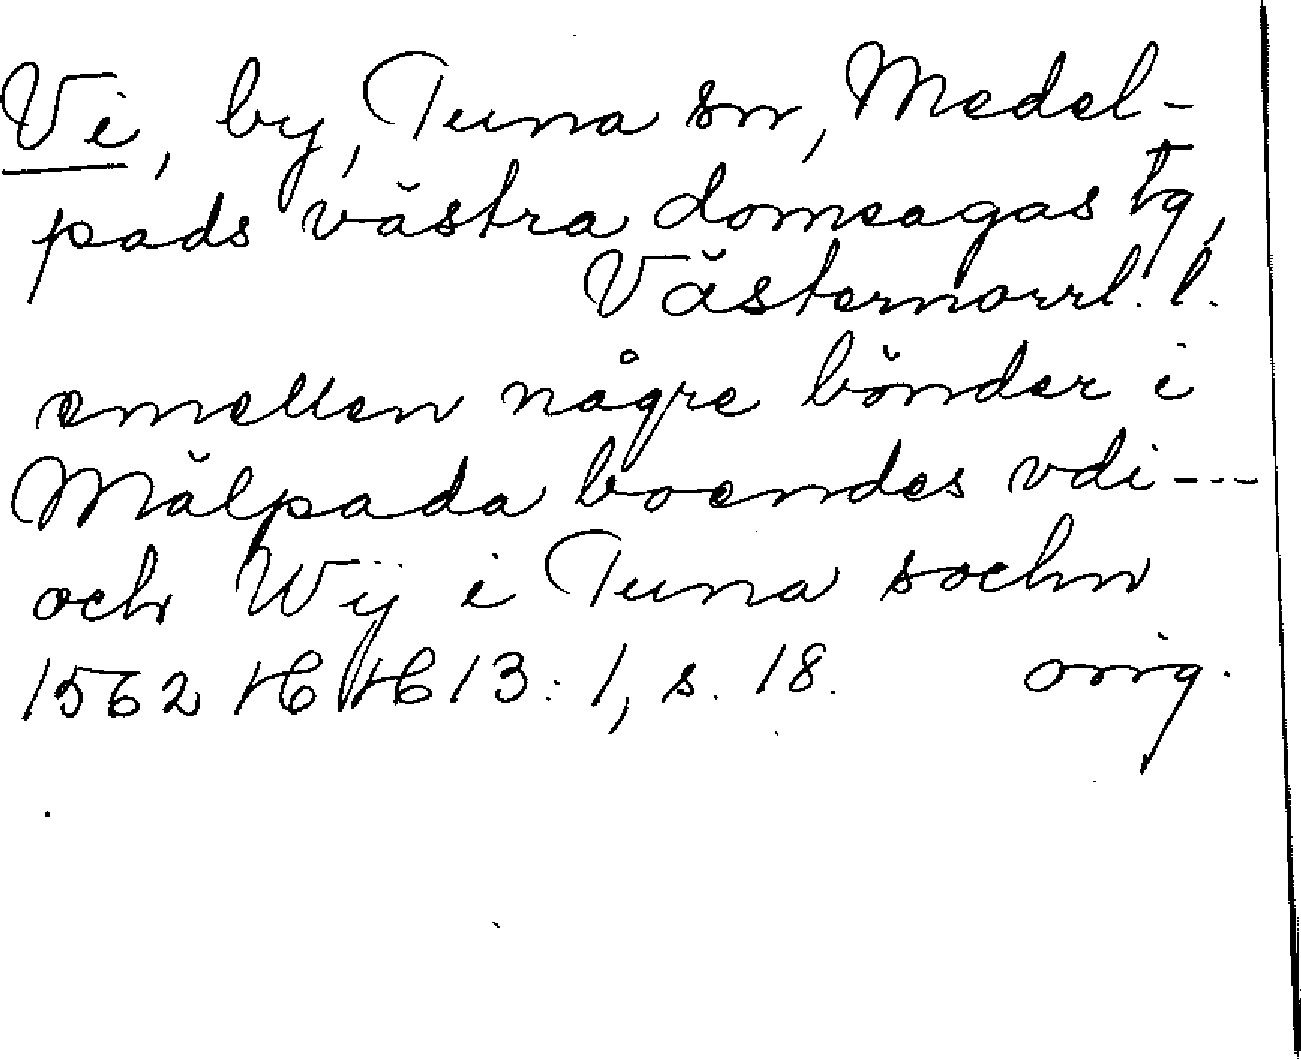 Vi, by, Tuna sn, Medel-
pads västra domsagas tg,
Västernorrl. l.
emellen någre bönder i
Mälpada boendes vdi ---
och Wij i Tuna sochn
1562 HH 13:1, s. 18. orig.